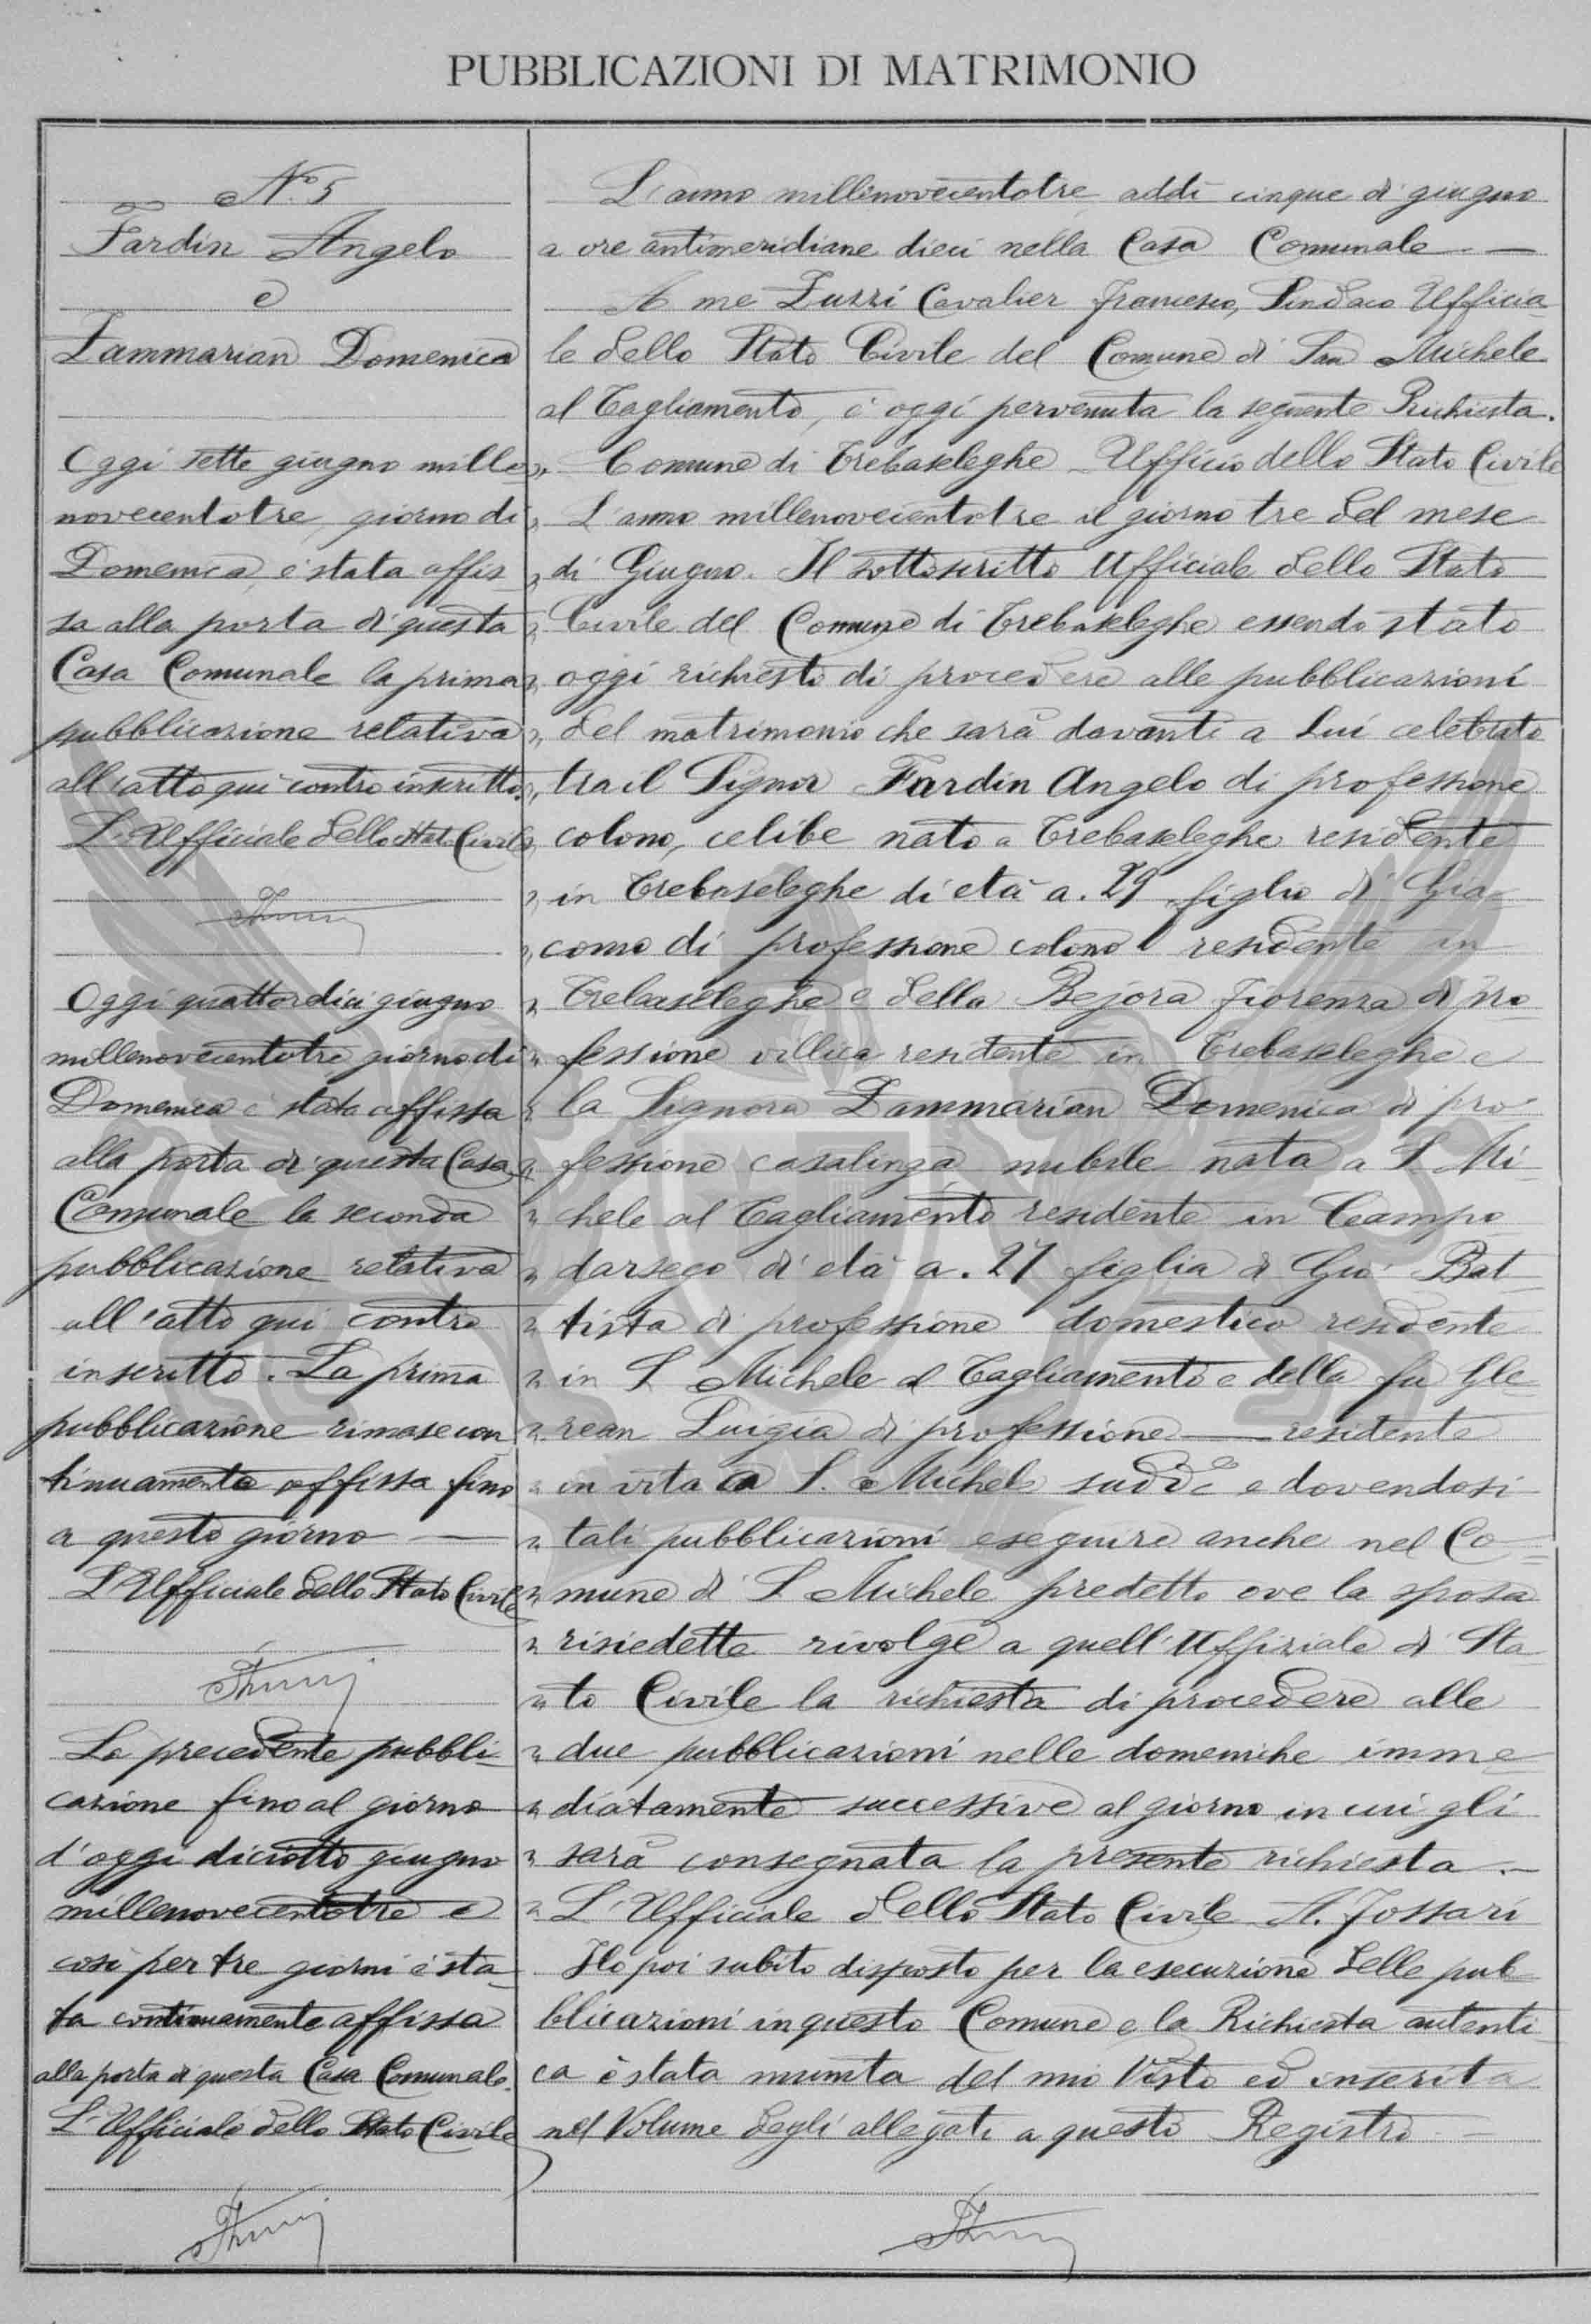 PUBBLICAZIONI DI MATRIMONIO
N.º 5
Fardin Angelo
e
Zammarian Domenica
Oggi sette giugno mille
novecentotre, giorno di
Domenica, è stata affis
sa alla porta di questa
Casa Comunale la prima
pubblicazione relativa
all'atto qui contro inscritto.
L'Ufficiale dello Stato Civile
Oggi quattordici giugno
millenovecentotre giorno di
Domenica è stata affissa
alla porta di questa Casa
Comunale la seconda
pubblicazione relativa
all'atto qui contro
inscritto. La prima
pubblicazione rimase con
tinuamente affissa fino
a questo giorno —
L'Ufficiale dello Stato Civile
La precedente pubbli
cazione fino al giorno
d'oggi diciotto giugno
millenovecentotre e
così per tre giorni è sta
ta continuamente affissa
alla porta di questa Casa Comunale.
L'Ufficiale dello Stato Civile
L'anno millenovecentotre, addì cinque di giugno
a ore antimeridiane dieci nella Casa Comunale —
A me Zuzzi Cavalier Francesco, Sindaco Ufficia
le dello Stato Civile del Comune di San Michele
al Tagliamento, è oggi pervenuta la seguente Richiesta.
" Comune di Trebaseleghe Ufficio dello Stato Civile
" L'anno millenovecentotre il giorno tre del mese
" di Giugno. Il sottoscritto Ufficiale dello Stato
" Civile del Comune di Trebaseleghe essendo stato
" oggi richiesto di procedere alle pubblicazioni
" del matrimonio che sarà davanti a Lui celebrato
" tra il Signor Fardin Angelo di professione
" colono, celibe nato a Trebaseleghe residente
" in Trebaseleghe di età a. 29 figlio di Gia-
" como di professione colono residente in
" Trebaseleghe e della Bejora Fiorenza di pro
" fessione villica residente in Trebaseleghe e
" la Signora Zammarian Domenica di pro
" fessione casalinga nubile nata a S. Mi-
" chele al Tagliamento residente in Campo
" darsego di età a. 27 figlia di Gio Bat
" tista di professione domestico residente
" in S. Michele al Tagliamento e della fu Gle-
" rean Luigia di professione — residente
" in vita a S. Michele sudd.º e dovendosi
" tali pubblicazioni eseguire anche nel Co-
" mune di S. Michele predetto ove la sposa
" risiedette rivolge a quell'Uffiziale di Sta-
" to Civile la richiesta di procedere alle
" due pubblicazioni nelle domeniche imme
" diatamente successive al giorno in cui gli
" sarà consegnata la presente richiesta. —
" L'Ufficiale dello Stato Civile A. Fossari
Ho poi subito disposto per la esecuzione delle pub
blicazioni in questo Comune e la Richiesta autenti
ca è stata munita del mio Visto ed inserita
nel Volume degli allegati a questo Registro —